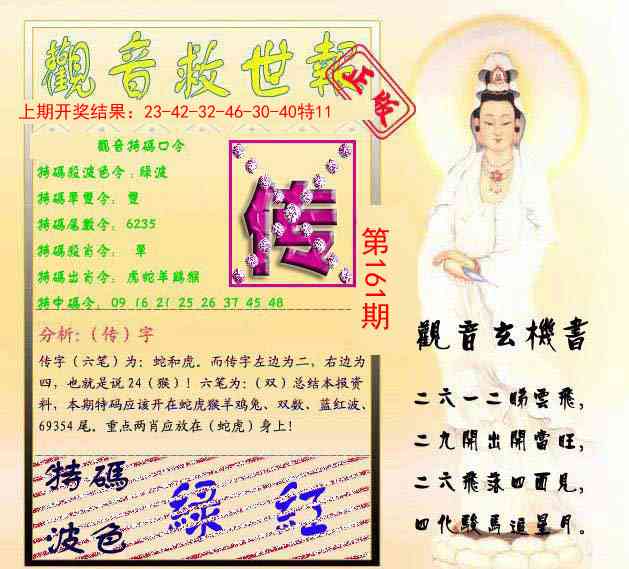 觀音救世報
正版
上期开奖结果：23-42-32-46-30-40特11
觀音特碼口令
特碼段波色令：綠波
特碼單雙令： 雙
特碼尾數令： 6235
特碼段肖令： 單
特碼出肖令： 虎蛇羊鷄猴
特中碼令： 09 16 21 25 26 37 45 48
传
第161期
分析:（传）字
传字（六笔）为：蛇和虎。而传字左边为二，右边为
四，也就是说24（猴）！六笔为：（双）总结本报资
料，本期特码应该开在蛇虎猴羊鸡兔、双数、蓝红波、
69354尾。重点两肖应放在（蛇虎）身上！
特碼
波色
綠 紅
觀音玄機書
二六一二睇雲飛，
二九開出開當旺，
二六飛落四面見，
四化駿馬追星月。